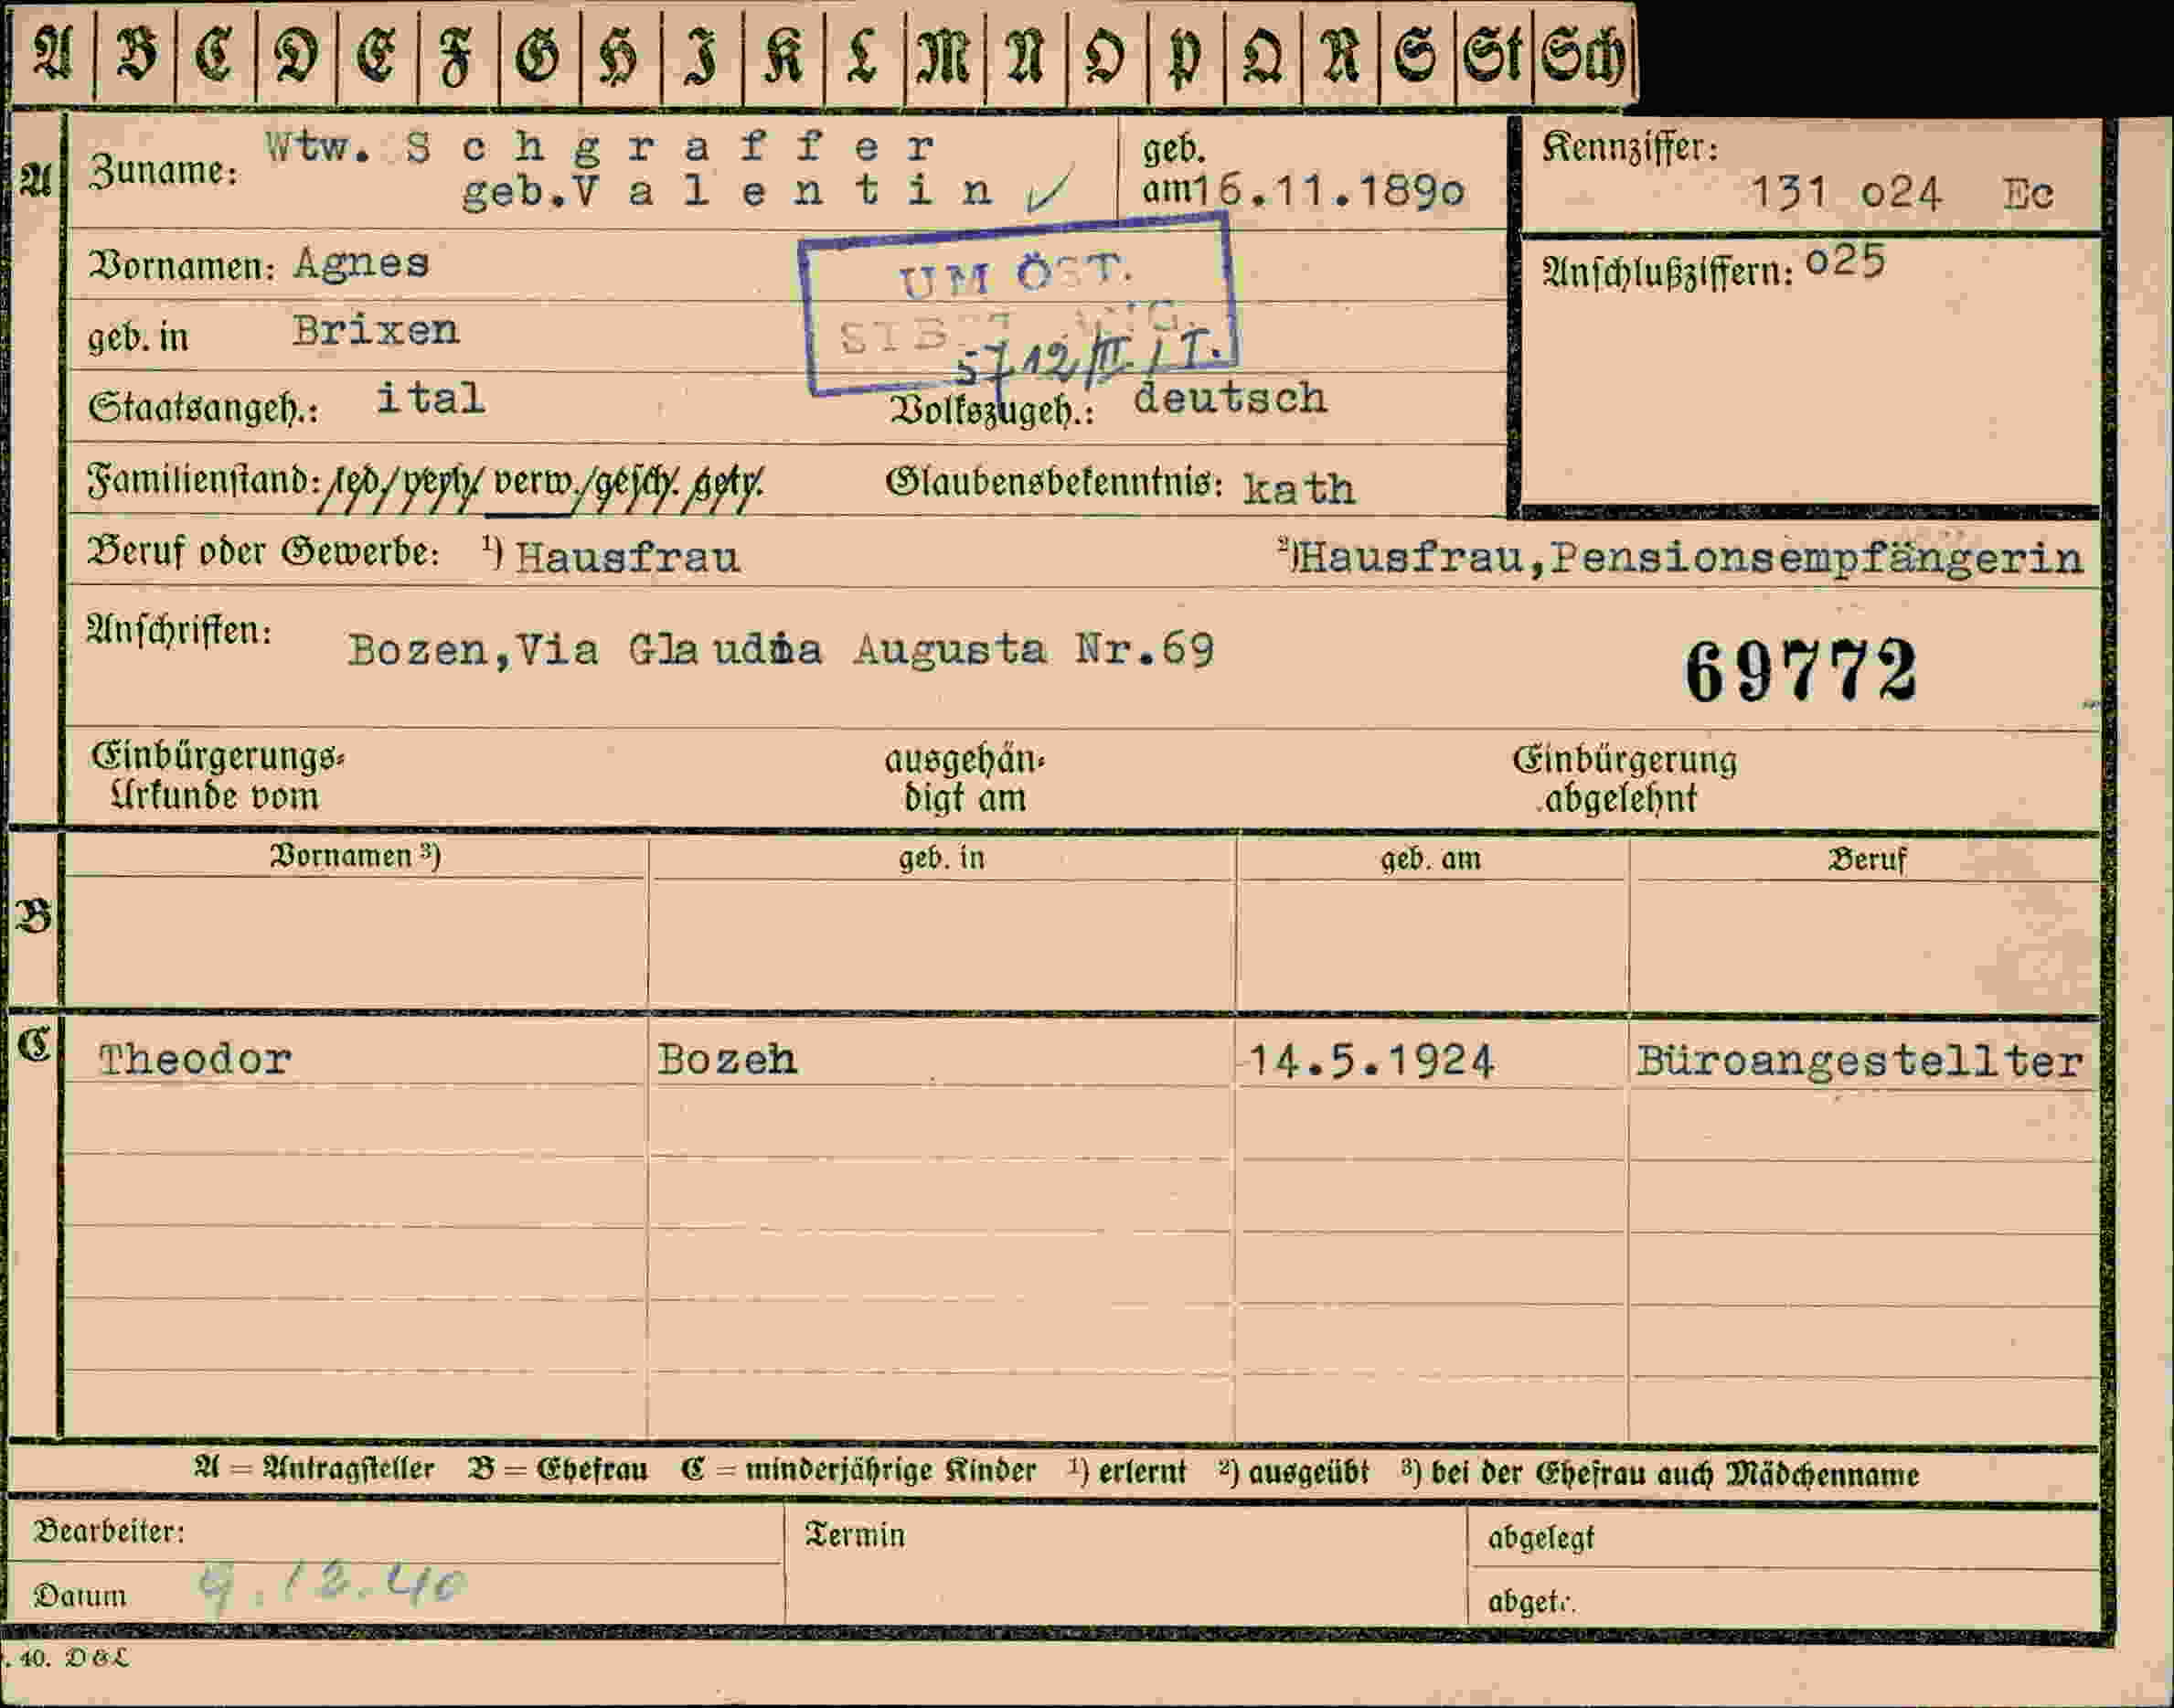 A B C D E F G H I K L M N O P Q R S St Sch
A
Zuname: Wtw. Schgraffer
geb. Valentin ✓
geb. am 16.11.189o
Kennziffer:
131 o24 Ec
Vornamen: Agnes
Anschlußziffern: o25
UM ÖST.
geb. in Brixen
5712/II. / I.
Staatsangeh.: ital Volkszugeh.: deutsch
Familienstand: led./verh./verw./gesch. getr. Glaubensbekenntnis: kath
Beruf oder Gewerbe: ¹) Hausfrau ²) Hausfrau,Pensionsempfängerin
Anschriften: Bozen,Via Glaudia Augusta Nr.69
69772
Einbürgerungs= ausgehän= Einbürgerung
Urkunde vom digt am abgelehnt
B
Vornamen ³) geb. in geb. am Beruf
C
Theodor Bozen 14.5.1924 Büroangestellter
A = Antragsteller B = Ehefrau C = minderjährige Kinder ¹) erlernt ²) ausgeübt ³) bei der Ehefrau auch Mädchenname
Bearbeiter: Termin abgelegt
Datum 9.12.40 abgetr.
. 40. D & L